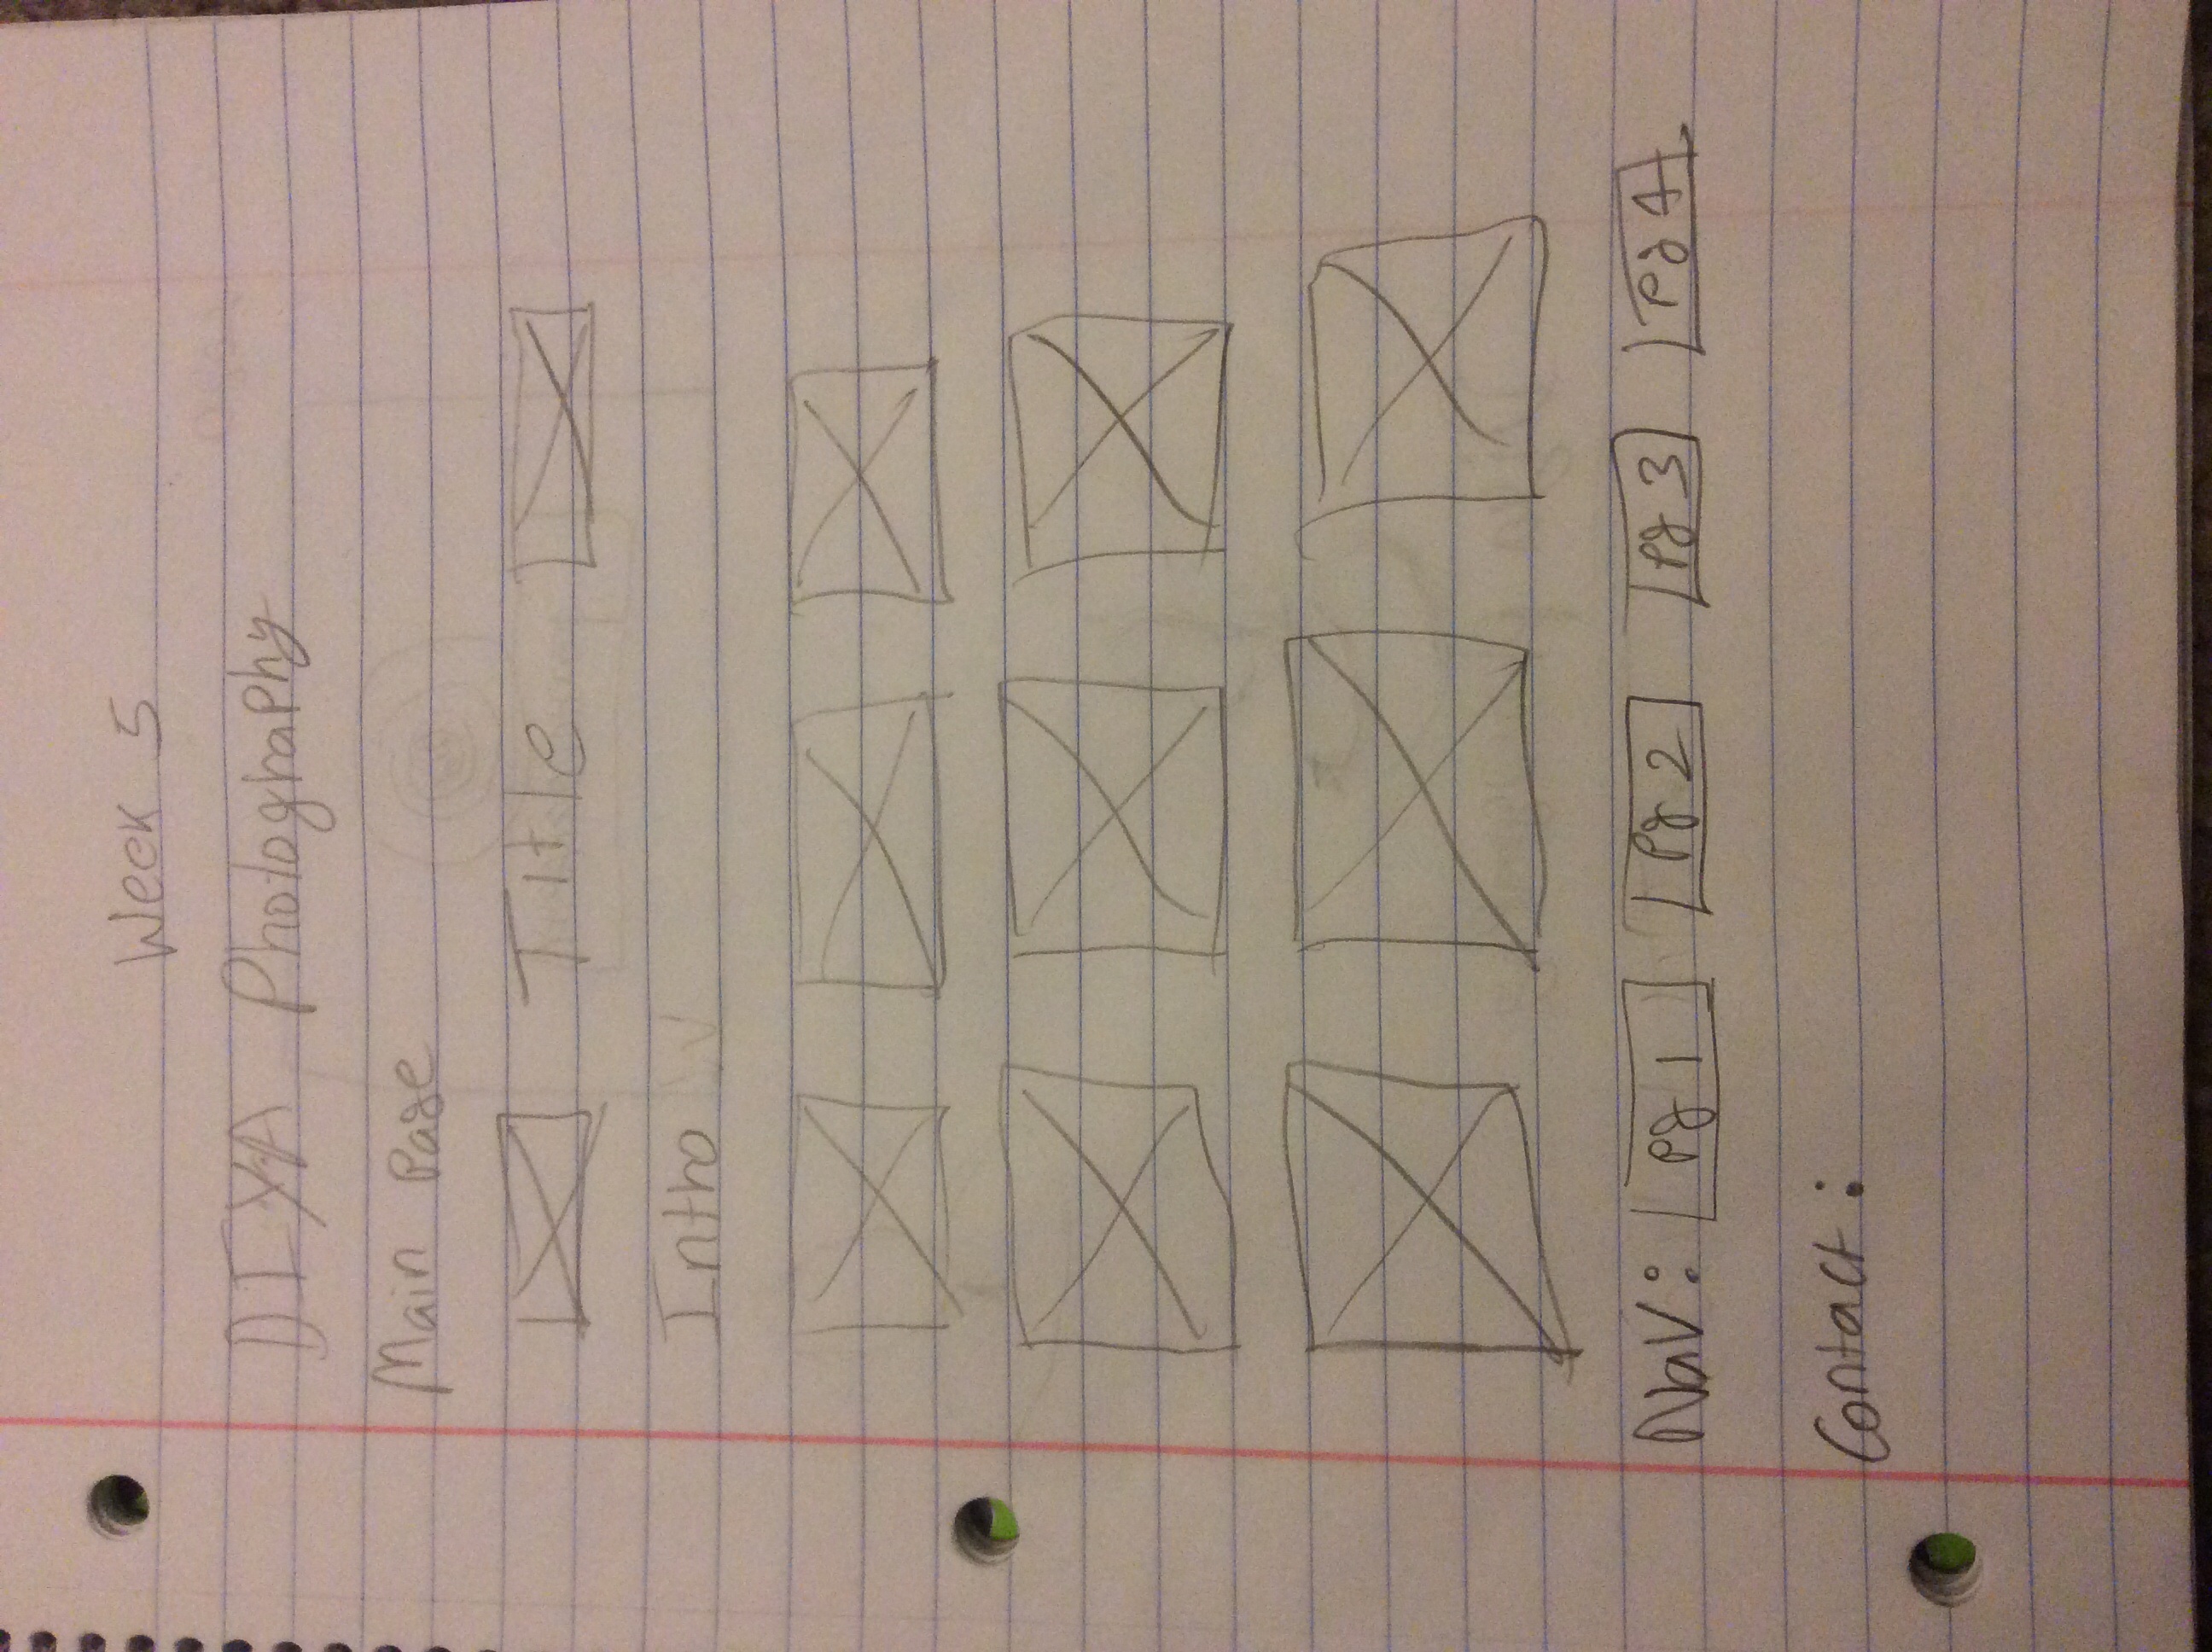 Week 5
DIYA Photography
Main Page
Title
Intro
Nav: Pg 1 Pg 2 Pg 3 Pg 4
Contact: